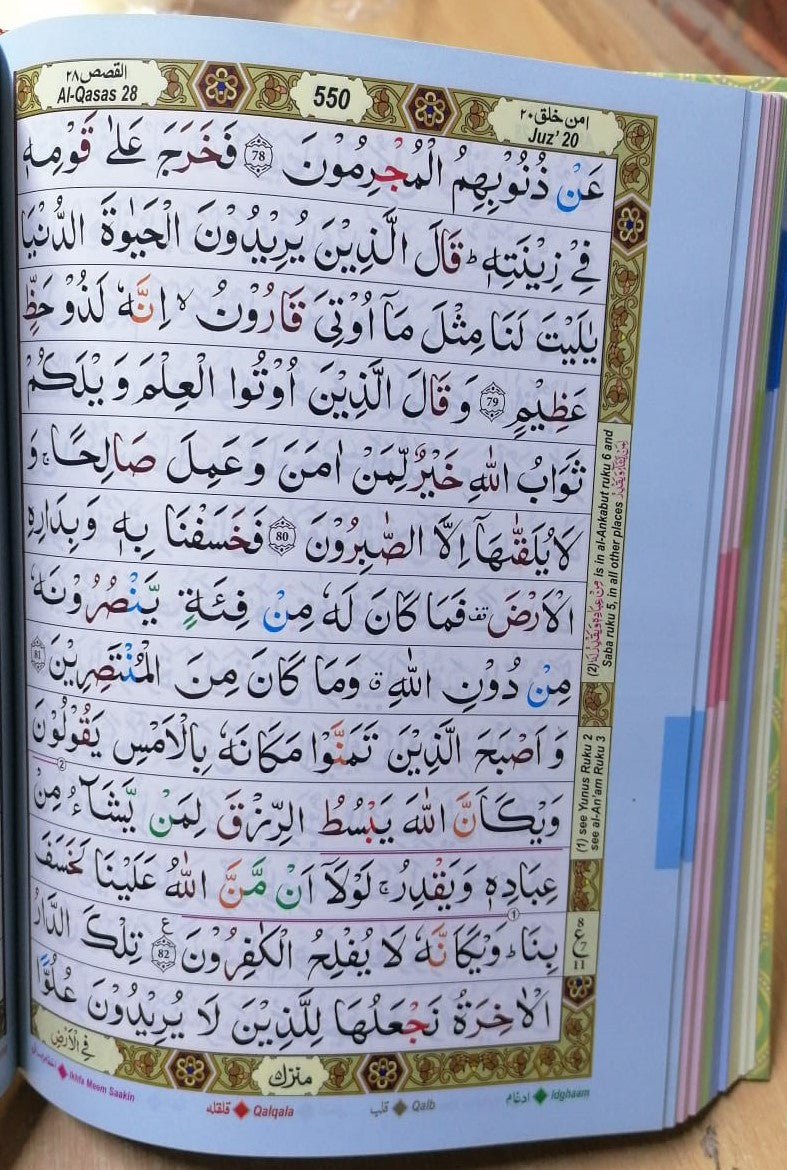 القصص ٢٨
Al-Qasas 28
550
امن خلق ٢٠
Juz' 20
عَنْ ذُنُوْبِهِمُ الْمُجْرِمُوْنَ 78 فَخَرَجَ عَلٰى قَوْمِهٖ
فِيْ زِيْنَتِهٖ ؕ قَالَ الَّذِيْنَ يُرِيْدُوْنَ الْحَيٰوةَ الدُّنْيَا
يٰلَيْتَ لَنَا مِثْلَ مَاۤ اُوْتِيَ قَارُوْنُ ۙ اِنَّهٗ لَذُوْ حَظٍّ
عَظِيْمٍ 79 وَقَالَ الَّذِيْنَ اُوْتُوا الْعِلْمَ وَيْلَكُمْ
ثَوَابُ اللّٰهِ خَيْرٌ لِّمَنْ اٰمَنَ وَعَمِلَ صَالِحًا ۚ وَ
لَا يُلَقّٰىهَاۤ اِلَّا الصّٰبِرُوْنَ 80 فَخَسَفْنَا بِهٖ وَبِدَارِهِ
الْاَرْضَ ۫ فَمَا كَانَ لَهٗ مِنْ فِئَةٍ يَّنْصُرُوْنَهٗ
مِنْ دُوْنِ اللّٰهِ ۗ وَمَا كَانَ مِنَ الْمُنْتَصِرِيْنَ 81
وَاَصْبَحَ الَّذِيْنَ تَمَنَّوْا مَكَانَهٗ بِالْاَمْسِ يَقُوْلُوْنَ
وَيْكَاَنَّ اللّٰهَ يَبْسُطُ الرِّزْقَ لِمَنْ يَّشَآءُ مِنْ
عِبَادِهٖ وَيَقْدِرُ ۚ لَوْلَاۤ اَنْ مَّنَّ اللّٰهُ عَلَيْنَا لَخَسَفَ
بِنَا ؕ وَيْكَاَنَّهٗ لَا يُفْلِحُ الْكٰفِرُوْنَ 82 تِلْكَ الدَّارُ
الْاٰخِرَةُ نَجْعَلُهَا لِلَّذِيْنَ لَا يُرِيْدُوْنَ عُلُوًّا
(2) مِنْ عِبَادِهٖ وَيَقْدِرُ لَهٗ Is in al-Ankabut ruku 6 and
Saba ruku 5, in all other places
(1) see Yunus Ruku 2
see al-An'am Ruku 3
8
ع 7
11
فِي الْاَرْضِ
منزل
Ikhfa Meem Saakin
قلقله Qalqala
قلب Qalb
ادغام Idghaam